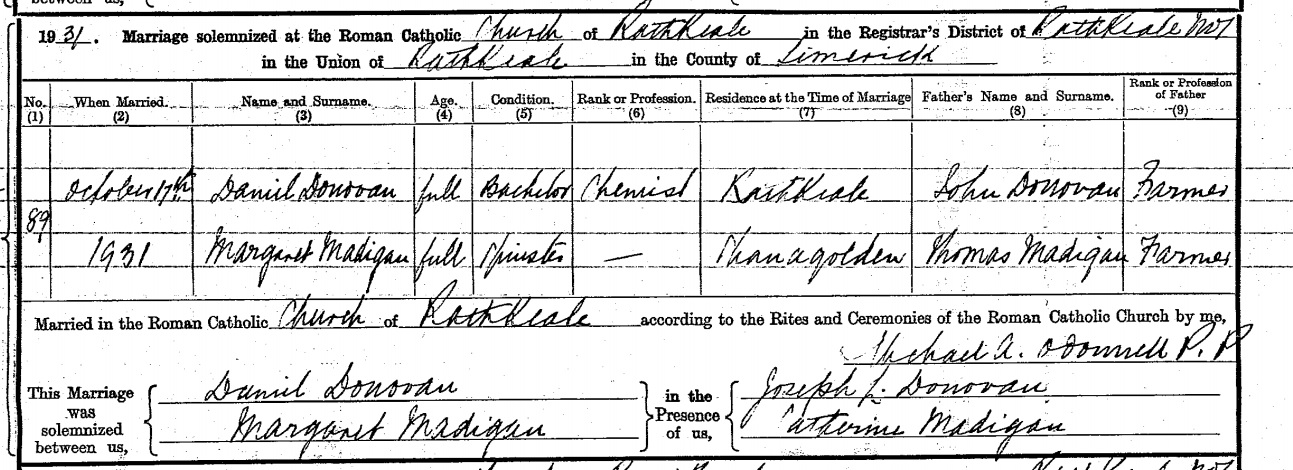 between us,
1931. Marriage solemnized at the Roman Catholic Church of Rathkeale in the Registrar's District of Rathkeale No 1
in the Union of Rathkeale in the County of Limerick
No. When Married. Name and Surname. Age. Condition. Rank or Profession. Residence at the Time of Marriage Father's Name and Surname. Rank or Profession of Father
(1) (2) (3) (4) (5) (6) (7) (8) (9)
October 17th Daniel Donovan full Bachelor Chemist Rathkeale John Donovan Farmer
89
1931 Margaret Madigan full Spinster — Shanagolden Thomas Madigan Farmer
Married in the Roman Catholic Church of Rathkeale according to the Rites and Ceremonies of the Roman Catholic Church by me,
Michael A. O'Donnell P. P
This Marriage was solemnized between us, { Daniel Donovan } in the Presence of us, { Joseph L. Donovan
Margaret Madigan Catherine Madigan